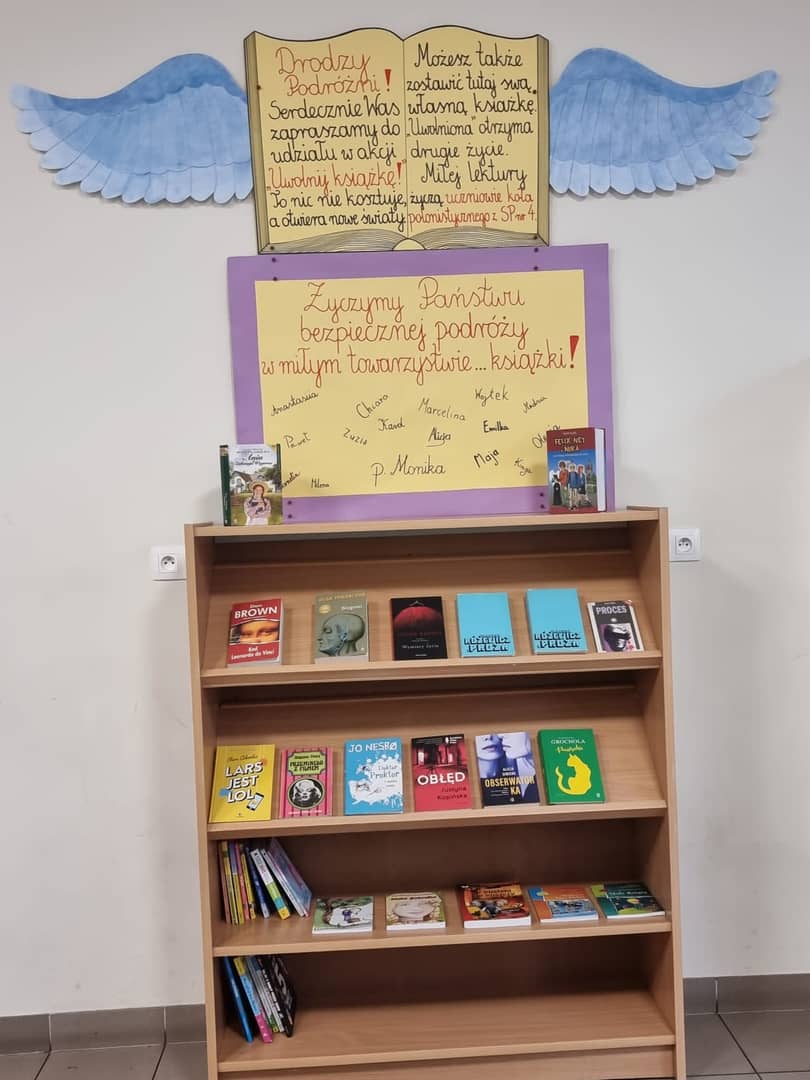 Drodzy
Podróżni!
Serdecznie Was
zapraszamy do
udziału w akcji
„Uwolnij książkę!"
To nic nie kosztuje,
a otwiera nowe światy
Możesz także
zostawić tutaj swą
własną książkę.
„Uwolniona" otrzyma
drugie życie.
Miłej lektury
życzą uczniowie koła
polonistycznego z SP nr 4.
Życzymy Państwu
bezpiecznej podróży
w miłym towarzystwie... książki!
Anastasiia
Chiara
Marcelina
Wojtek
Paweł
Zuzia
Karol
Alicja
Emilka
Milena
p. Monika
Maja
Ania
BROWN
Kod
Leonarda da Vinci
Wymiary życia
PROCES
LARS
JEST
LOL
JO NESBØ
Doktor
Proktor
OBŁĘD
Justyna
Kopińska
OBSERWATOR
KA
GROCHOLA